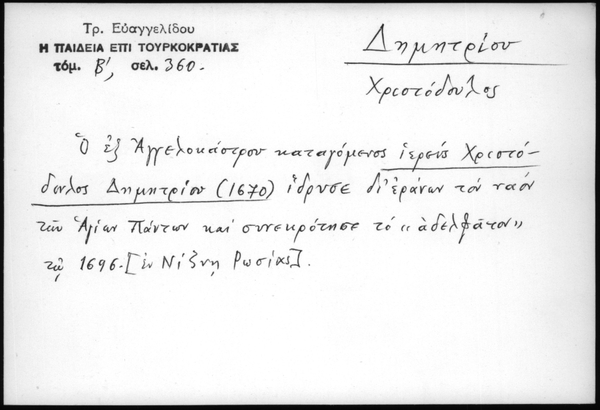 Τρ. Εὐαγγελίδου
Η ΠΑΙΔΕΙΑ ΕΠΙ ΤΟΥΡΚΟΚΡΑΤΙΑΣ
τόμ. Β', σελ. 360.
Δημητρίου
Χριστόδουλος
Ὁ ἐξ Ἀγγελοκάστρου καταγόμενος ἱερεύς Χριστό-
δουλος Δημητρίου (1670) ἵδρυσε δι' ἐράνων τόν ναόν
τῶν Ἁγίων Πάντων καί συνεκρότησε τό «ἀδελφᾶτον»
τῷ 1696.[ἐν Νίζνῃ Ρωσίας].